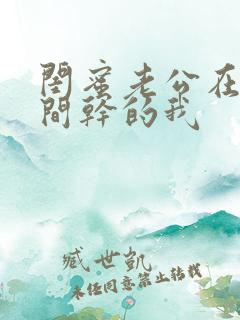 閨蜜老公在
間幹的我
臧世凱
未经同意禁止转载